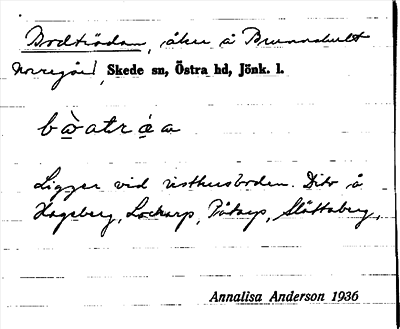 Bodträdan, åker å Brunnshult
Norregård, Skede sn, Östra hd, Jönk. l.
Ligger vid visthusboden. Dito å
Hagaberg, Lockarp, Påkarp, Slättaberg.
Annalisa Anderson 1936